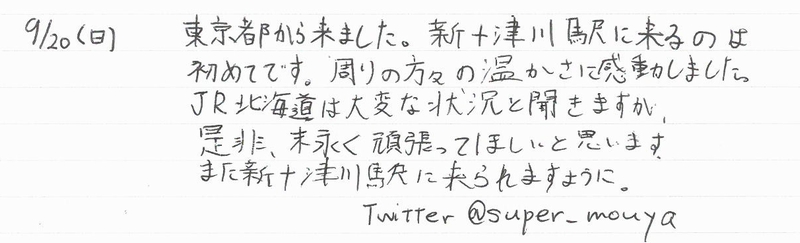 9/20(日) 東京都から来ました。新十津川駅に来るのは
初めてです。周りの方々の温かさに感動しました。
JR北海道は大変な状況と聞きますが、
是非、末永く頑張ってほしいと思います。
また新十津川駅に来られますように。
Twitter @super_mouya